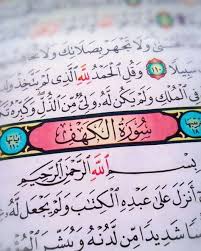 وَلَا تَجْهَرْ بِصَلَاتِكَ
سَبِيلًا ١١٠ وَقُلِ الْحَمْدُ لِلَّهِ الَّذِي لَمْ يَتَّخِذْ وَلَدًا
فِي الْمُلْكِ وَلَمْ يَكُن لَّهُ وَلِيٌّ مِّنَ الذُّلِّ وَكَبِّرْهُ
سُورَةُ الْكَهْفِ
بِسْمِ اللَّهِ الرَّحْمَٰنِ الرَّحِيمِ
أَنزَلَ عَلَىٰ عَبْدِهِ الْكِتَٰبَ وَلَمْ يَجْعَل لَّهُ
شَدِيدًا مِّن لَّدُنْهُ وَيُبَشِّرَ الْمُؤْ